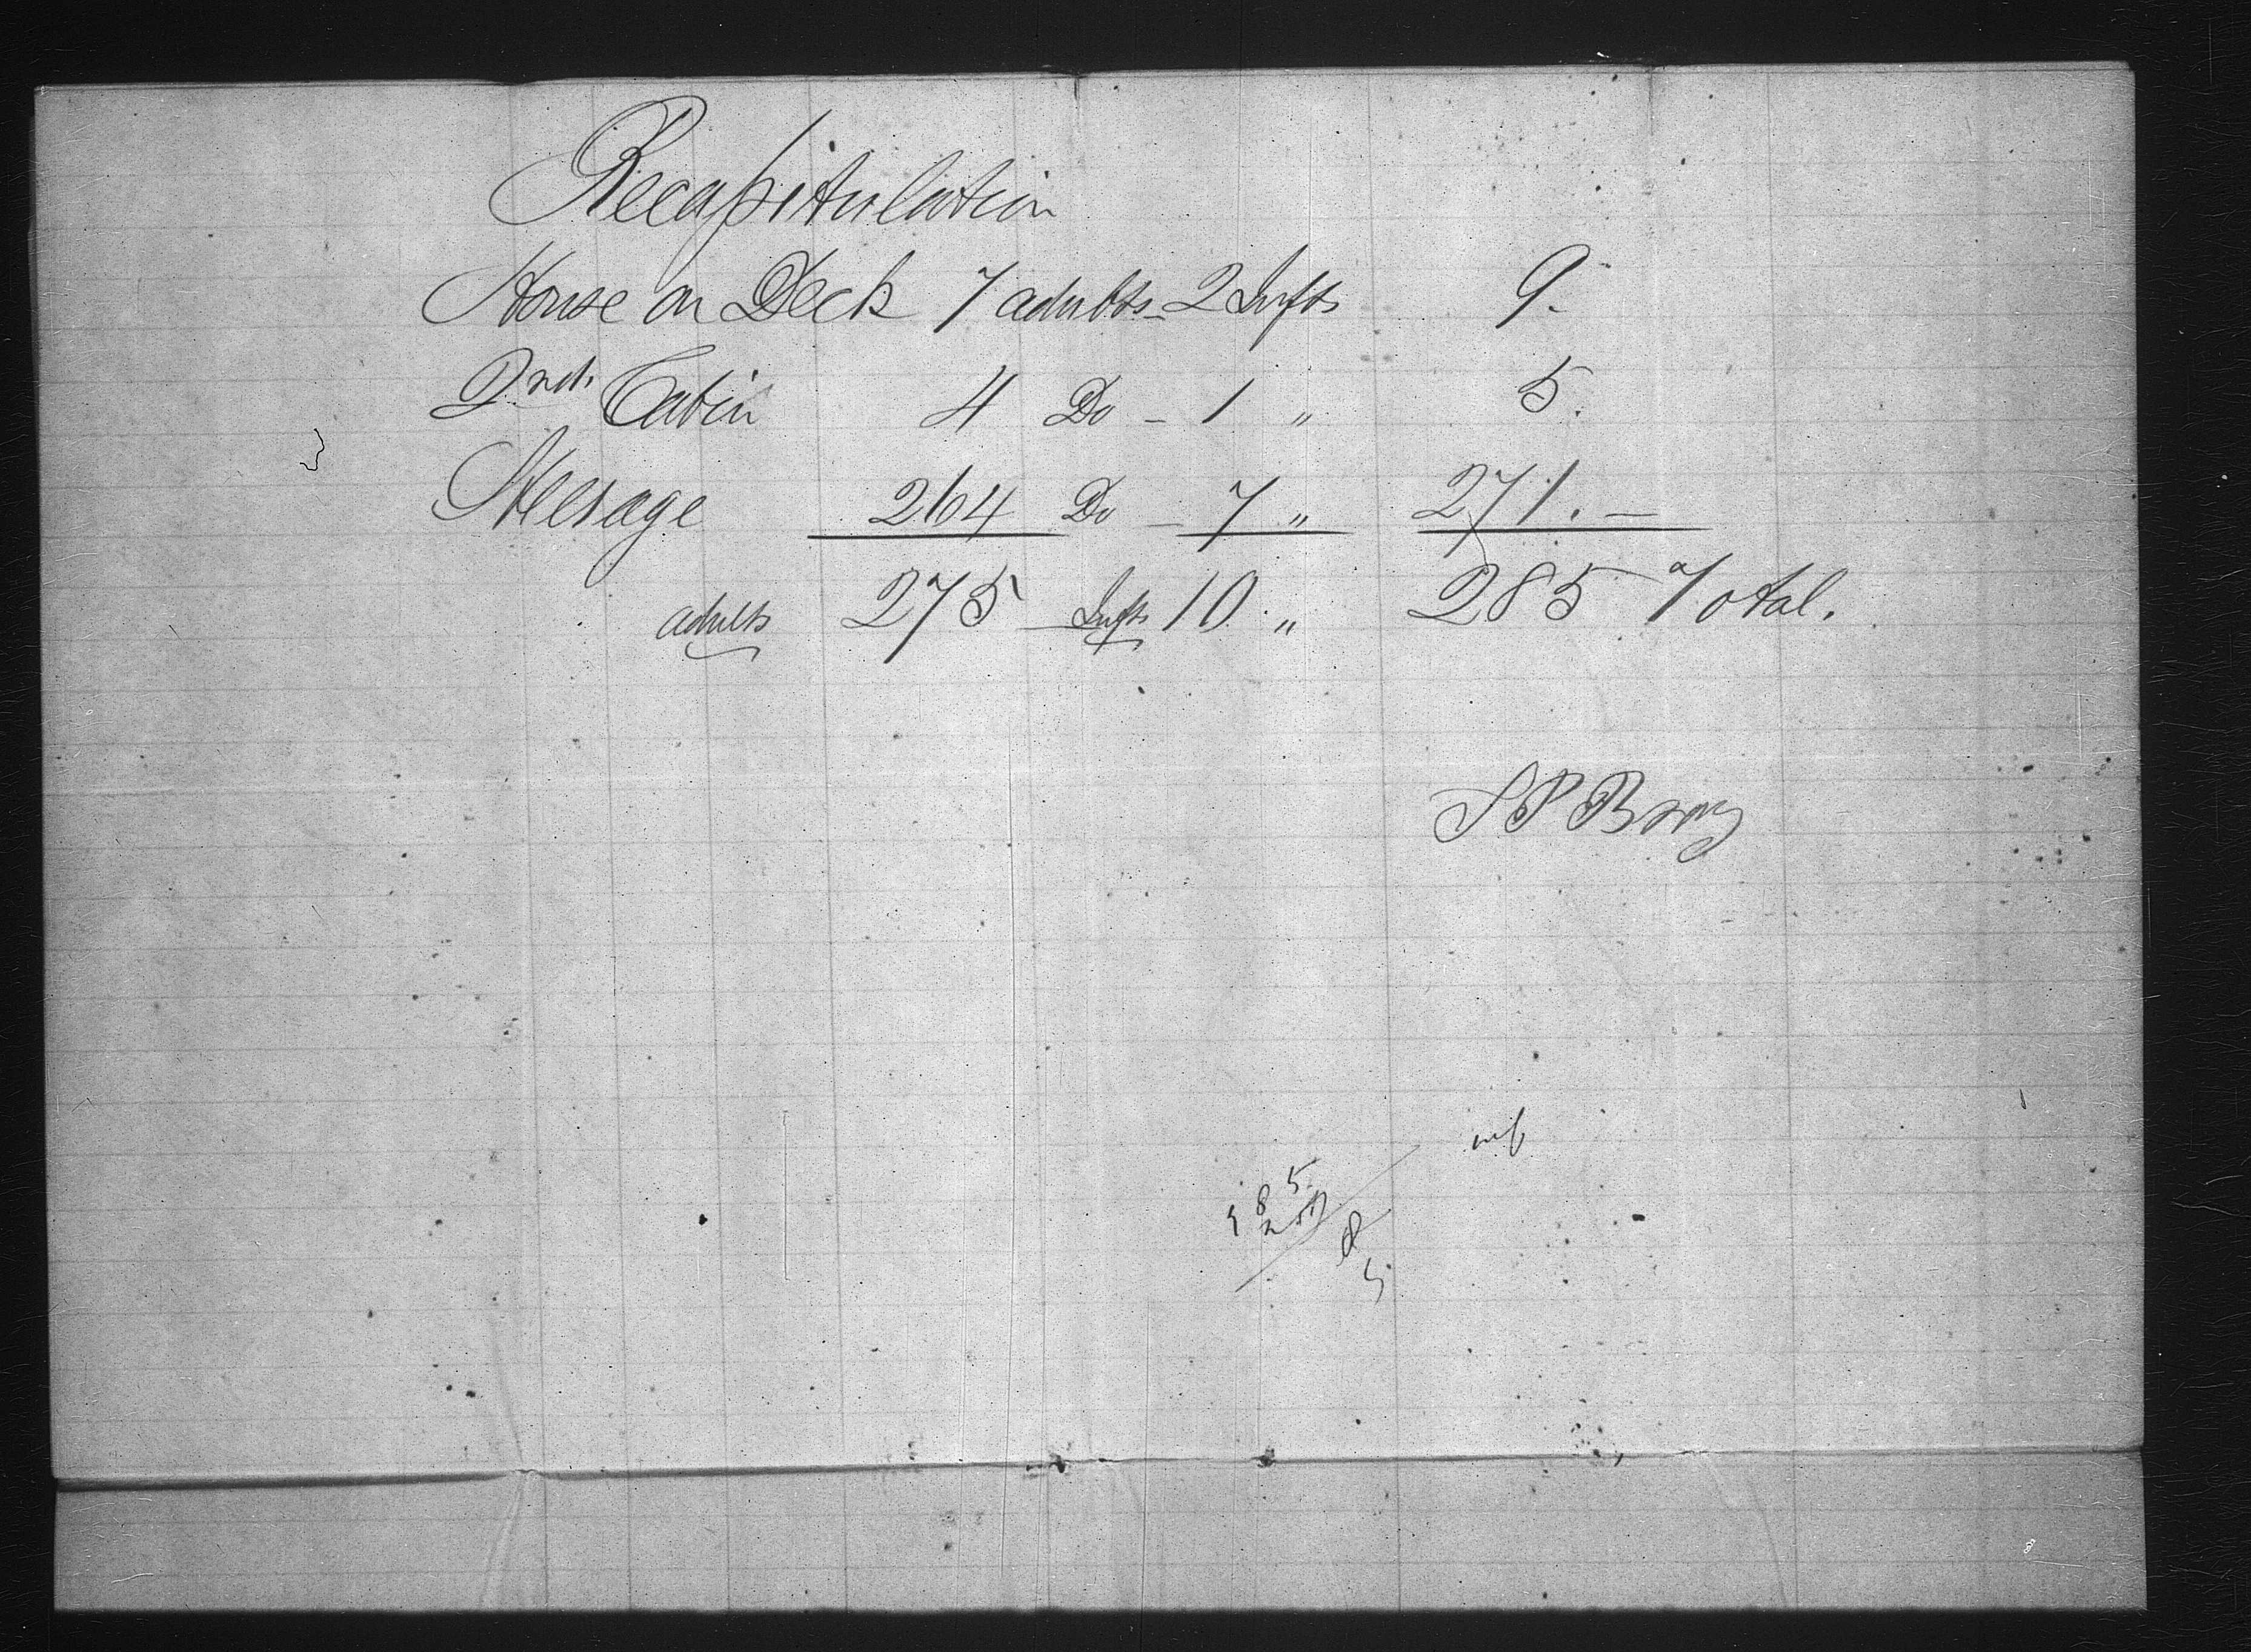 Recapitulation
House on Deck 7 adults - 2 Infts 9.
2nd. Cabin 4 Do - 1 " 5.
Steerage 264 Do - 7 " 271. -
adults 275 - Infts 10 " 285 Total.
S P Bray